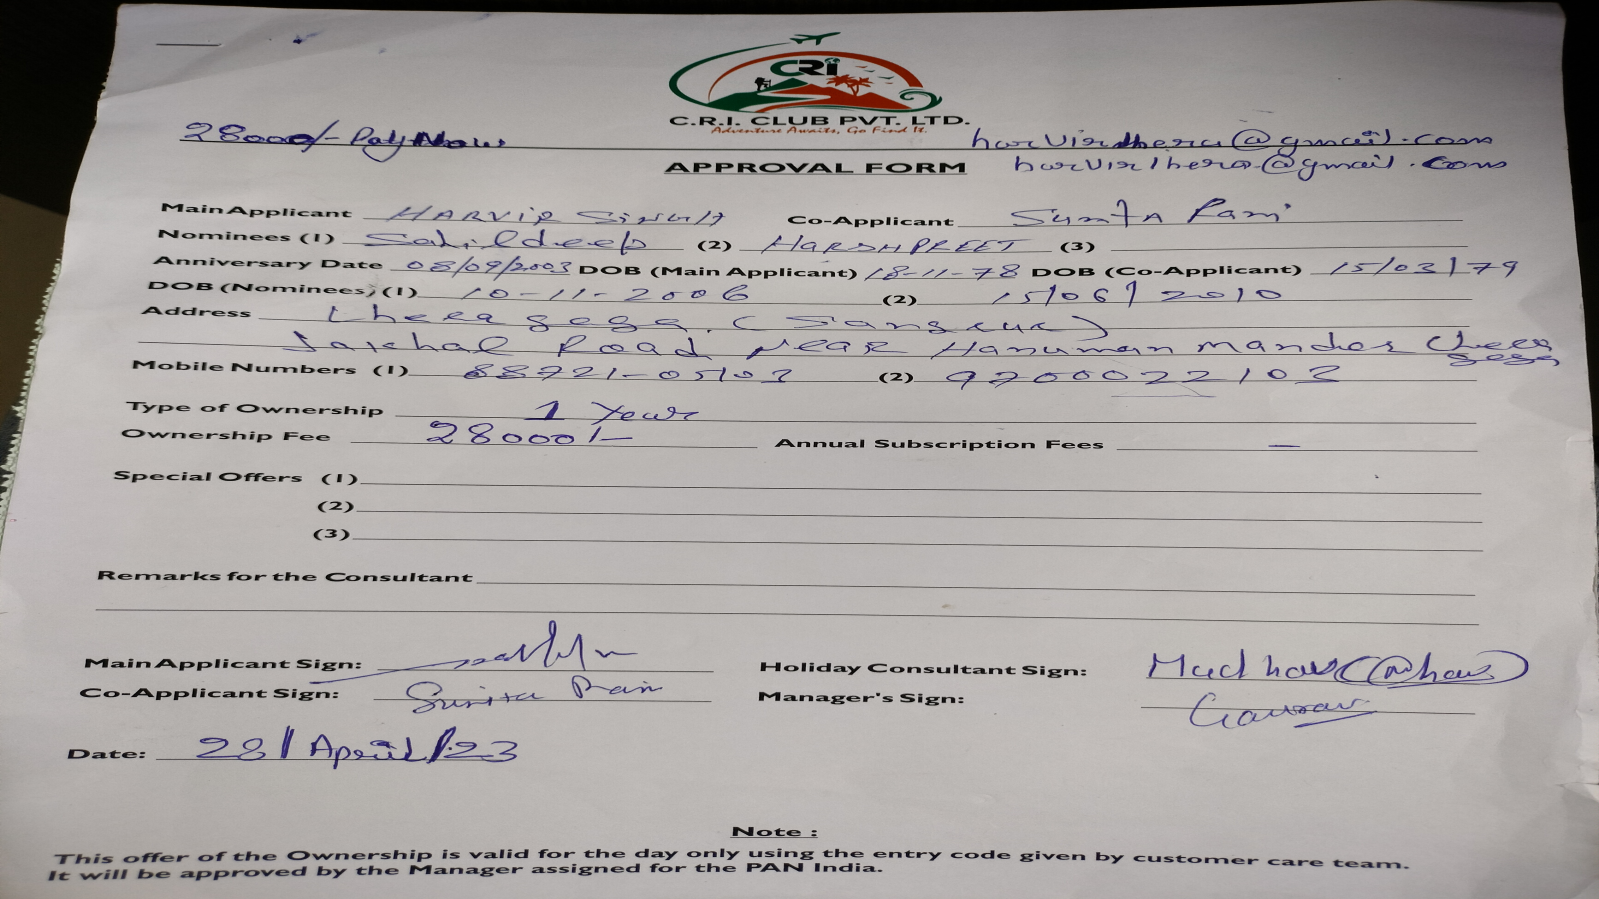 CRi
C.R.I. CLUB PVT. LTD.
Adventure Awaits, Go Find It.
28000/- Pay Now
harvirdhera@gmail.com
APPROVAL FORM
harvir1hera@gmail.com
Main Applicant HARVIR SINGH Co-Applicant Sunita Rani
Nominees (1) Sahildeep (2) HARSHPREET (3)
Anniversary Date 08/09/2003 DOB (Main Applicant) 18-11-78 DOB (Co-Applicant) 15/03/79
DOB (Nominees) (1) 10-11-2006 (2) 15/06/2010
Address (Sangrur)
Jakhal Road Near Hanuman Mander
Mobile Numbers (1) 88721-05103 (2) 9700022103
Type of Ownership 1 Year
Ownership Fee 28000/- Annual Subscription Fees —
Special Offers (1)
(2)
(3)
Remarks for the Consultant
Main Applicant Sign: Holiday Consultant Sign: Madhav
Co-Applicant Sign: Sunita Rani Manager's Sign: Gaurav
Date: 28/April/23
Note :
This offer of the Ownership is valid for the day only using the entry code given by customer care team.
It will be approved by the Manager assigned for the PAN India.